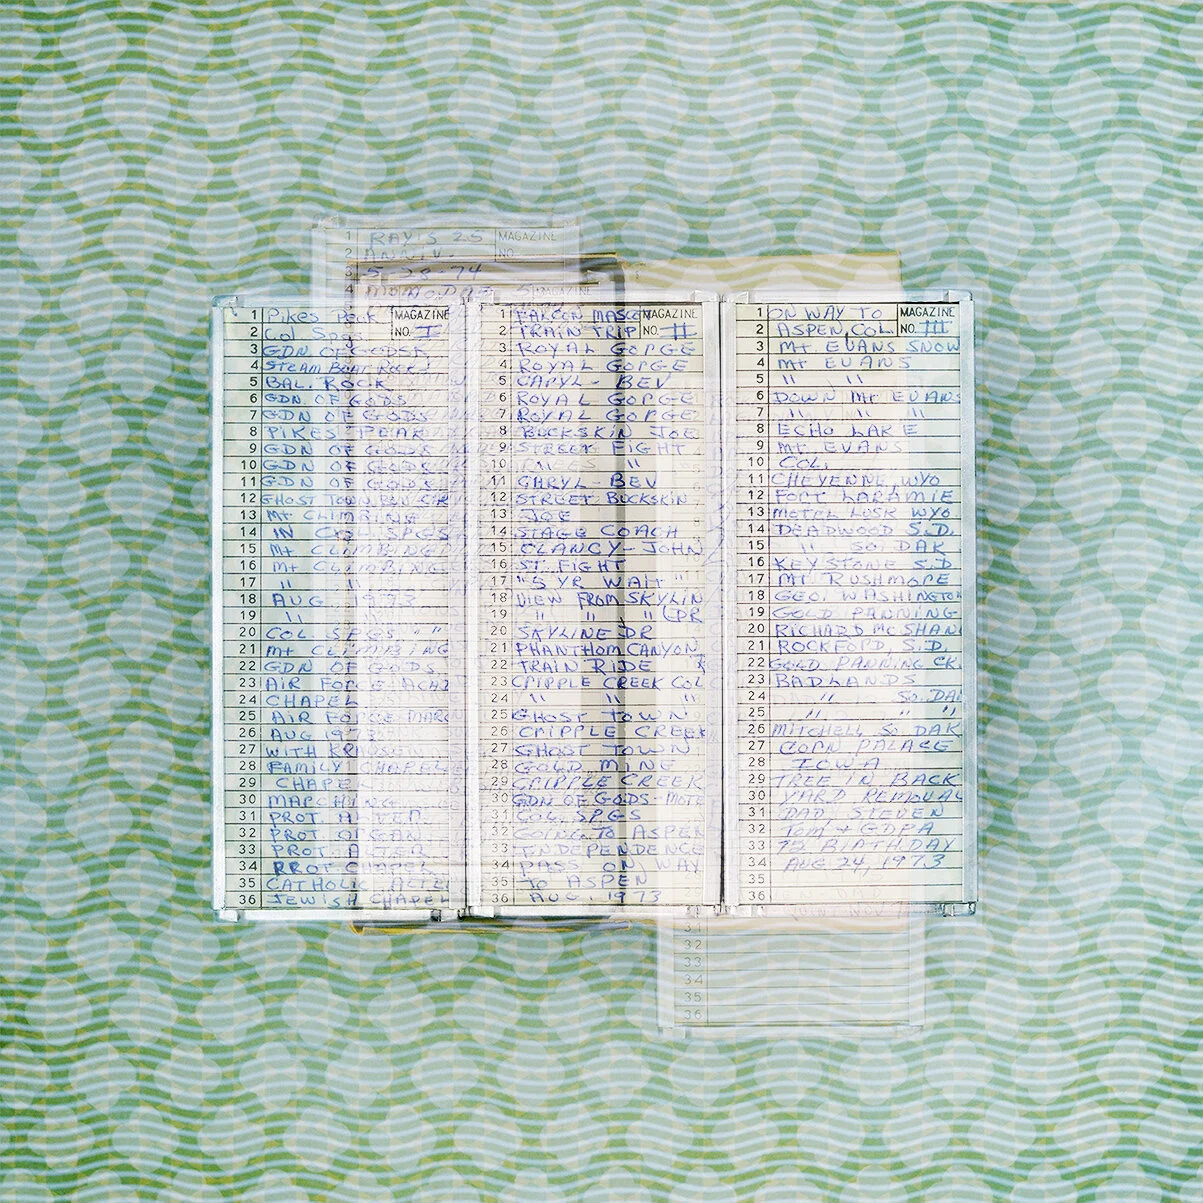 1 RAY'S 25 MAGAZINE
2 ANNIV. NO.
3 5-28-74
4 MOM & DAD
1 Pikes Peak MAGAZINE
2 Col Spg NO. I
3 GDN OF GODS
4 STEAM BOAT ROCK
5 BAL. ROCK
6 GDN OF GODS
7 GDN OF GODS
8 PIKES PEAK
9 GDN OF GODS
10 GDN OF GODS
11 GDN OF GODS
12 GHOST TOWN
13 Mt CLIMBING
14 IN COL SPGS
15 Mt CLIMBING
16 Mt CLIMBING
17 " "
18 AUG 1973
19 " "
20 COL. SPGS " "
21 Mt CLIMBING
22 GDN OF GODS
23 AIR FORCE
24 CHAPEL
25 AIR FORCE
26 AUG 1973
27 WITH
28 FAMILY CHAPEL
29 CHAPEL
30 MARCHING
31 PROT. ALTER
32 PROT. ORGAN
33 PROT. ALTER
34 PROT CHAPEL
35 CATHOLIC ALTER
36 JEWISH CHAPEL
1 FALCON MASCOT MAGAZINE
2 TRAIN TRIP NO. II
3 ROYAL GORGE
4 ROYAL GORGE
5 CARYL - BEV
6 ROYAL GORGE
7 ROYAL GORGE
8 BUCKSKIN JOE
9 STREET FIGHT
10 "
11 CARYL - BEV
12 STREET BUCKSKIN
13 JOE
14 STAGE COACH
15 CLANCY - JOHN
16 ST. FIGHT
17 "5 YR WAIT"
18 VIEW FROM SKYLIN
19 " " " DR
20 SKYLINE DR
21 PHANTHOM CANYON
22 TRAIN RIDE
23 CRIPPLE CREEK COL
24 " " "
25 GHOST TOWN
26 CRIPPLE CREEK
27 GHOST TOWN
28 GOLD MINE
29 CRIPPLE CREEK
30 GDN OF GODS - MOTEL
31 COL. SPGS
32 GOING TO ASPEN
33 INDEPENDENCE
34 PASS ON WAY
35 TO ASPEN
36 AUG. 1973
1 ON WAY TO MAGAZINE
2 ASPEN, COL. NO. III
3 Mt. EVANS SNOW
4 Mt EVANS
5 " "
6 DOWN Mt EVANS
7 " " "
8 ECHO LAKE
9 Mt. EVANS
10 COL.
11 CHEYENNE, WYO
12 FORT LARAMIE
13 MOTEL LUSK WYO.
14 DEADWOOD S.D.
15 " SO. DAK
16 KEYSTONE S.D
17 MT RUSHMORE
18 GEO. WASHINGTON
19 GOLD PANNING
20 RICHARD McSHAN
21 ROCKFORD, S.D.
22 GOLD PANNING CK.
23 BADLANDS
24 " SO. DAK
25 " " "
26 MITCHELL SO DAK
27 CORN PALACE
28 IOWA
29 TREE IN BACK
30 YARD REMOVAL
31 DAD, STEVEN
32 TOM + GDPA
33 75 BIRTHDAY
34 AUG 24, 1973
35
36
31
32
33
34
35
36